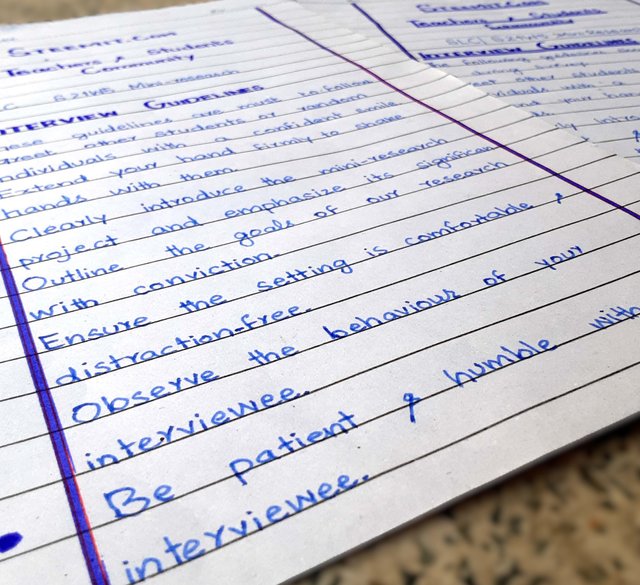 STEEMIT.COM
Teachers & Students
Community
S2W5 Mini-research
INTERVIEW GUIDELINES
These guidelines are must to follow
Greet other students or random
individuals with a confident smile
Extend your hand firmly to share
hands with them.
Clearly introduce the mini-research
project and emphasize its significan
Outline the goals of our research
with conviction.
Ensure the setting is comfortable &
distraction-free.
Observe the behaviour of your
interviewee.
Be patient & humble with
interviewee.
STEEMIT.COM
Teachers & Students
Community
INTERVIEW GUIDELINES